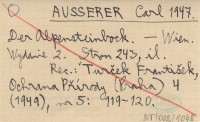 AUSSERER Carl 1947.
Der Alpensteinbock. — Wien.
Wydanie 2. Stron 243, il.
Rec.: Turček František,
Ochrana Přírody (Praha) 4
(1949), no 5: 119-120.
BT1008/1098